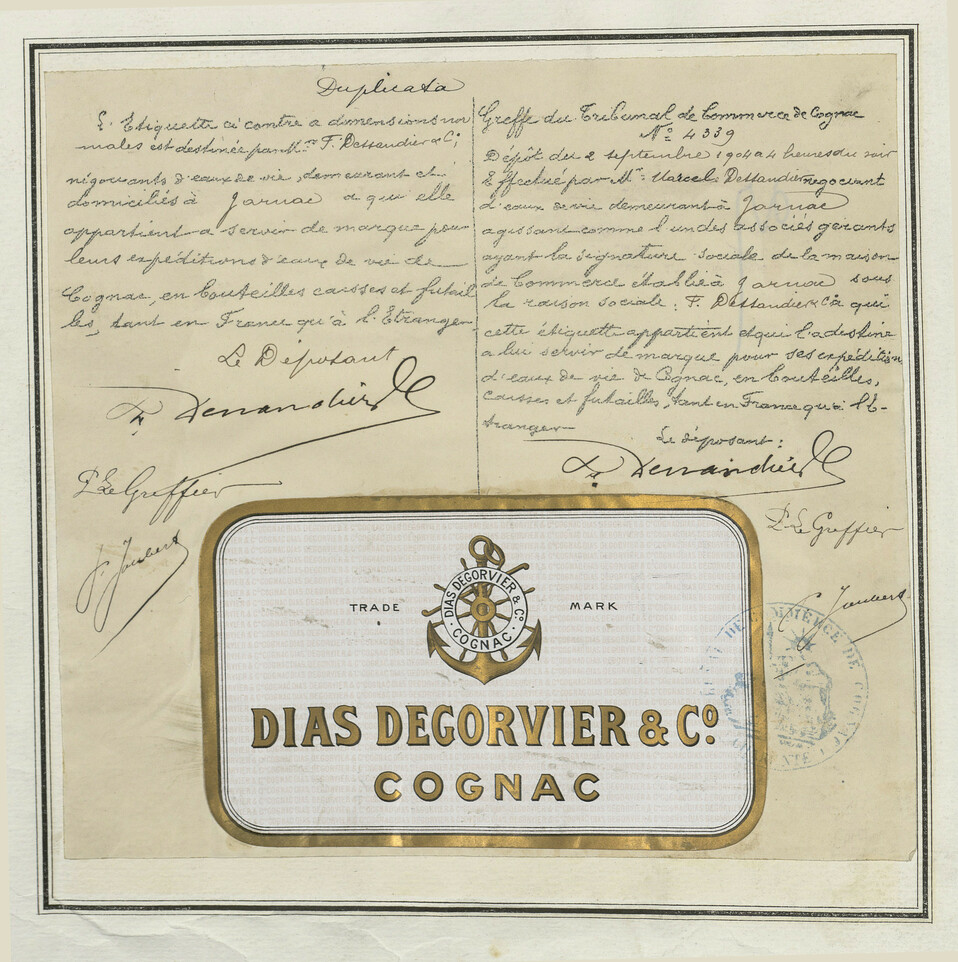 Duplicata
L'Etiquette ci contre a dimensions nor
males est destinée par Mrs F. Dessandier & Co,
négociants d'eaux de vie, demeurant et
domiciliés à Jarnac a qui elle
appartient a servir de marque pour
leurs expéditions d'eaux de vie de
Cognac, en bouteilles caisses et futail
les, tant en France qu'à l'Etranger
Le Déposant
F. Dessandier & Co
P. Le Greffier
Joubert
Greffe du Tribunal de Commerce de Cognac
No 4339
Dépôt du 2 septembre 1904 a 4 heures du soir
Effectué par Mr Marcel Dessandier négociant
d'eaux de vie demeurant à Jarnac
agissant comme l'un des associés gérants
ayant la signature sociale de la maison
de Commerce établie à Jarnac sous
la raison sociale: F. Dessandier & Co a qui
cette étiquette appartient et qui l'a destine
a lui servir de marque pour ses expédition
d'eaux de vie de Cognac, en bouteilles,
caisses et futailles, tant en France qu'à l'E-
tranger
Le déposant:
F. Dessandier & Co
P. Le Greffier
Joubert
DIAS DEGORVIER & Co.
COGNAC
TRADE MARK
DIAS DEGORVIER & Co.
COGNAC
DE COMMERCE DE COGNAC